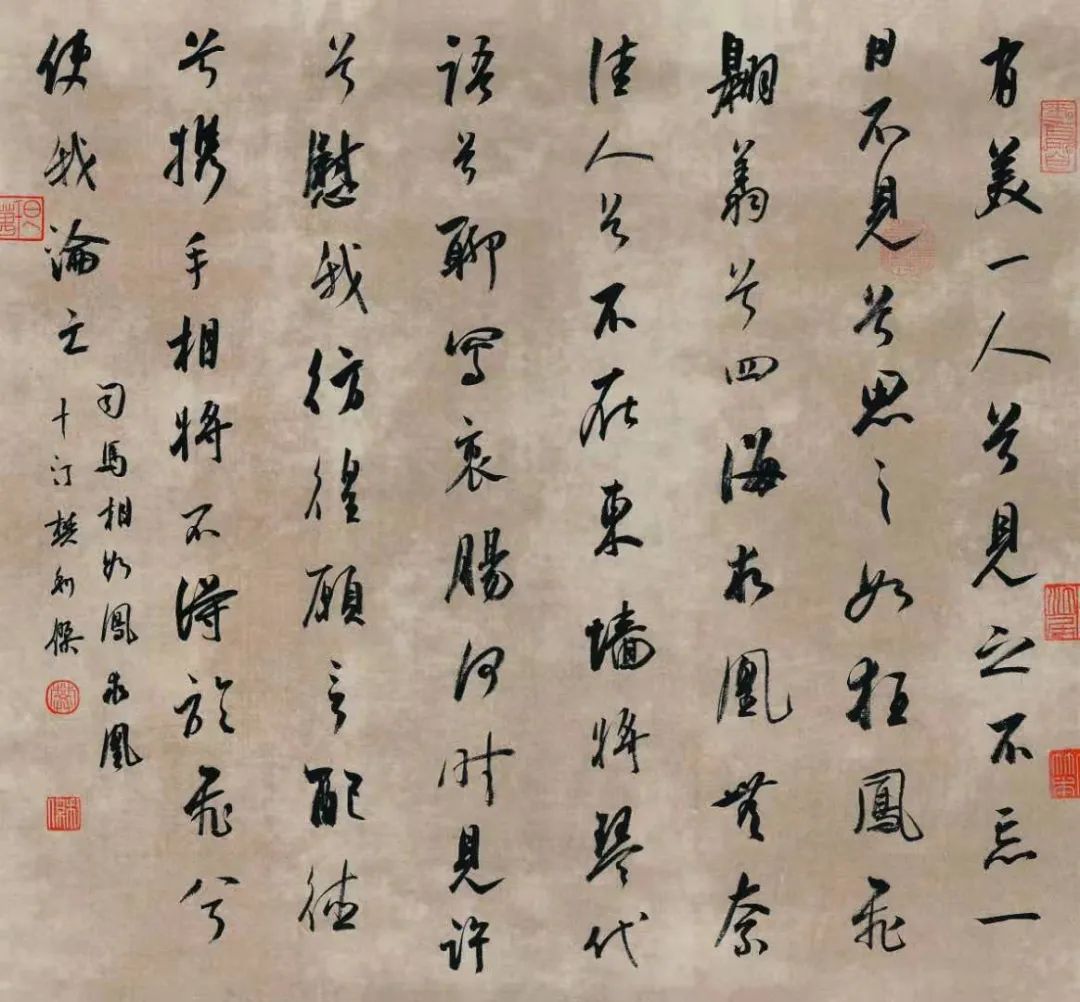 有美一人兮見之不忘一
日不見兮思之如狂鳳飛
翱翔兮四海求凰無奈
佳人兮不在東墻將琴代
語兮聊寫衷腸何时見許
兮慰我彷徨願言配德
兮携手相將不得於飛兮
使我淪亡
司馬相如鳳求凰
十汀樊利傑